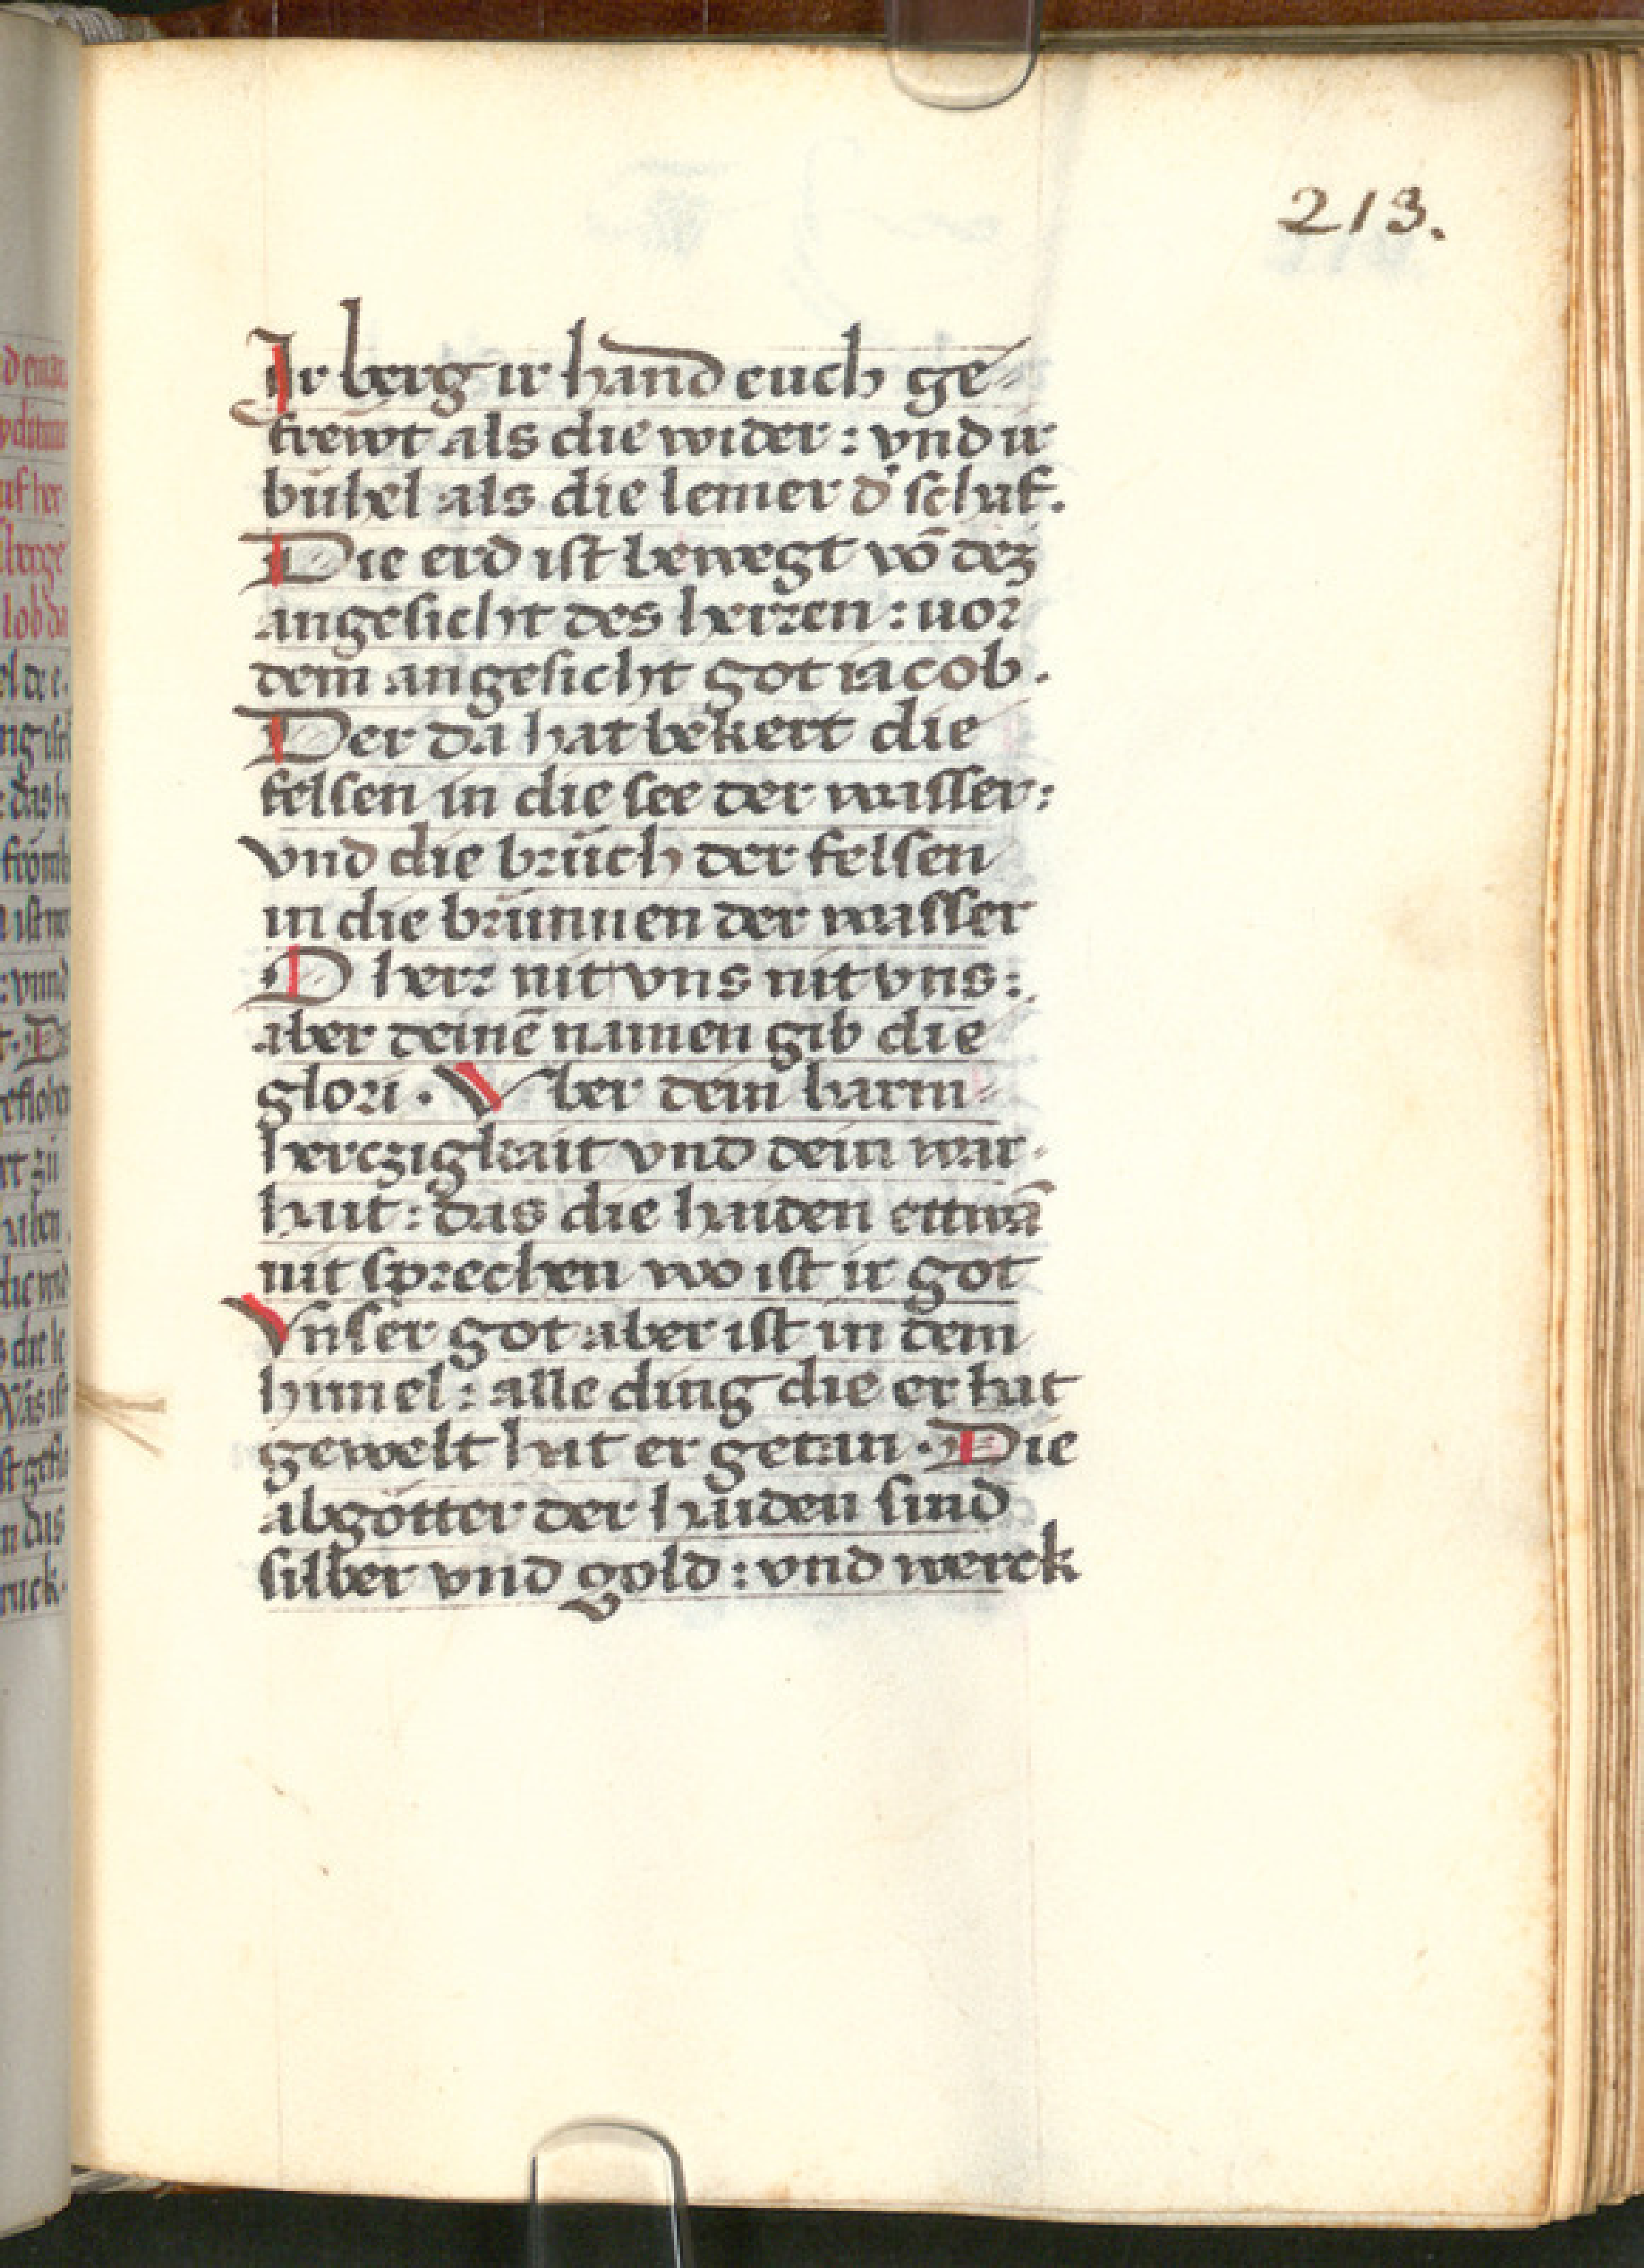 213.
Ir berg ir hand euch ge-
frewt als die wider : vnd ir
bühel als die lemer d' schaf.
Die erd ist bewegt vō dez
angesicht des herren : vor
dem angesicht got iacob.
Der da hat bekert die
felsen in die see der wasser :
vnd die brüch der felsen
in die brunnen der wasser
O herr nit vns nit vns :
aber deinē namen gib die
glori . Vber dein barm-
herczigkait vnd dein war-
hait : das die haiden ettwā
nit sprechen wo ist ir got
Vnser got aber ist in dem
himel : alle ding die er hat
gewelt hat er getan . Die
abgötter der haiden sind
silber vnd gold : vnd werck